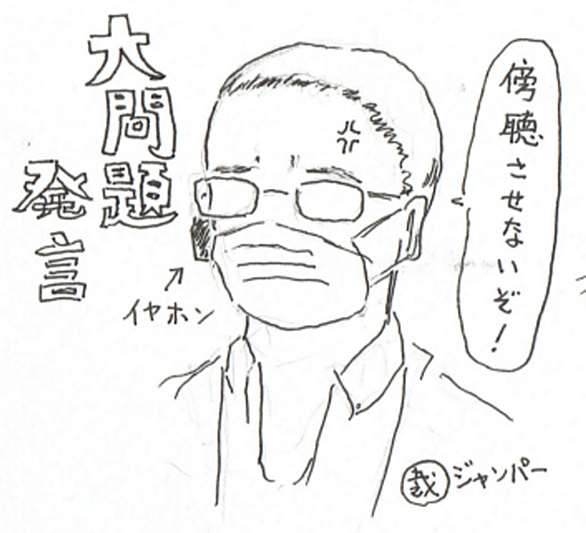 大問題
発言
傍聴させないぞ!
イヤホン
裁ジャンパー